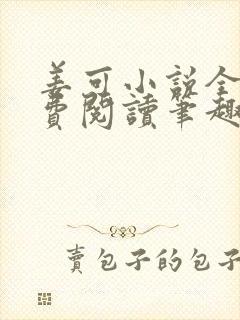 姜可小说全
費閱讀筆趣
賣包子的包子